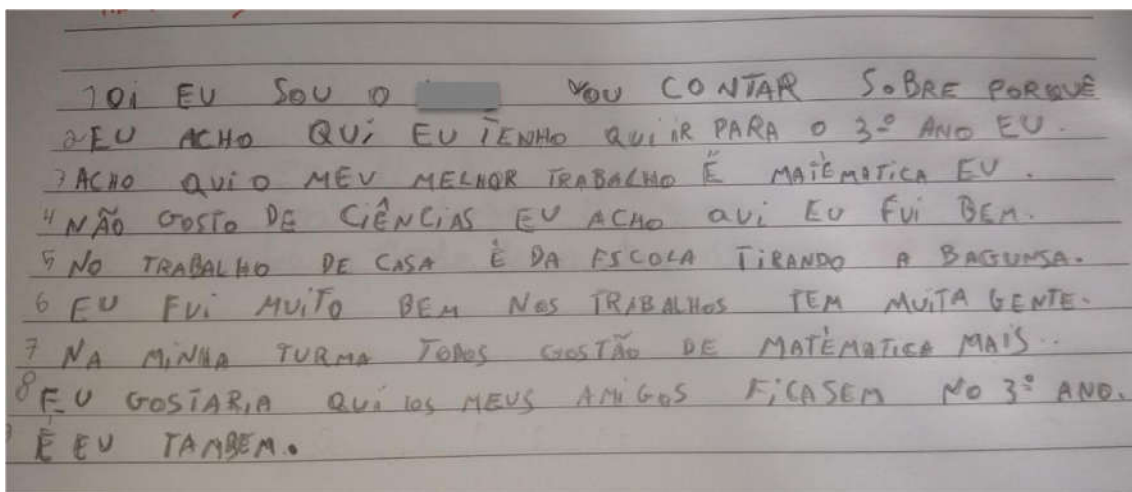 1 OI EU SOU O VOU CONTAR SOBRE PORQUÊ
2 EU ACHO QUI EU TENHO QUI IR PARA O 3º ANO EU.
3 ACHO QUI O MEU MELHOR TRABALHO É MATÉMATICA EU.
4 NÃO GOSTO DE CIÊNCIAS EU ACHO QUI EU FUI BEM.
5 NO TRABALHO DE CASA É DA ESCOLA TIRANDO A BAGUNSA.
6 EU FUI MUITO BEM NOS TRABALHOS TEM MUITA GENTE.
7 NA MINHA TURMA TODOS GOSTÃO DE MATÉMATICA MAIS..
8 EU GOSTARIA QUI OS MEUS AMIGOS FICASEM NO 3º ANO.
É EU TAMBEM.